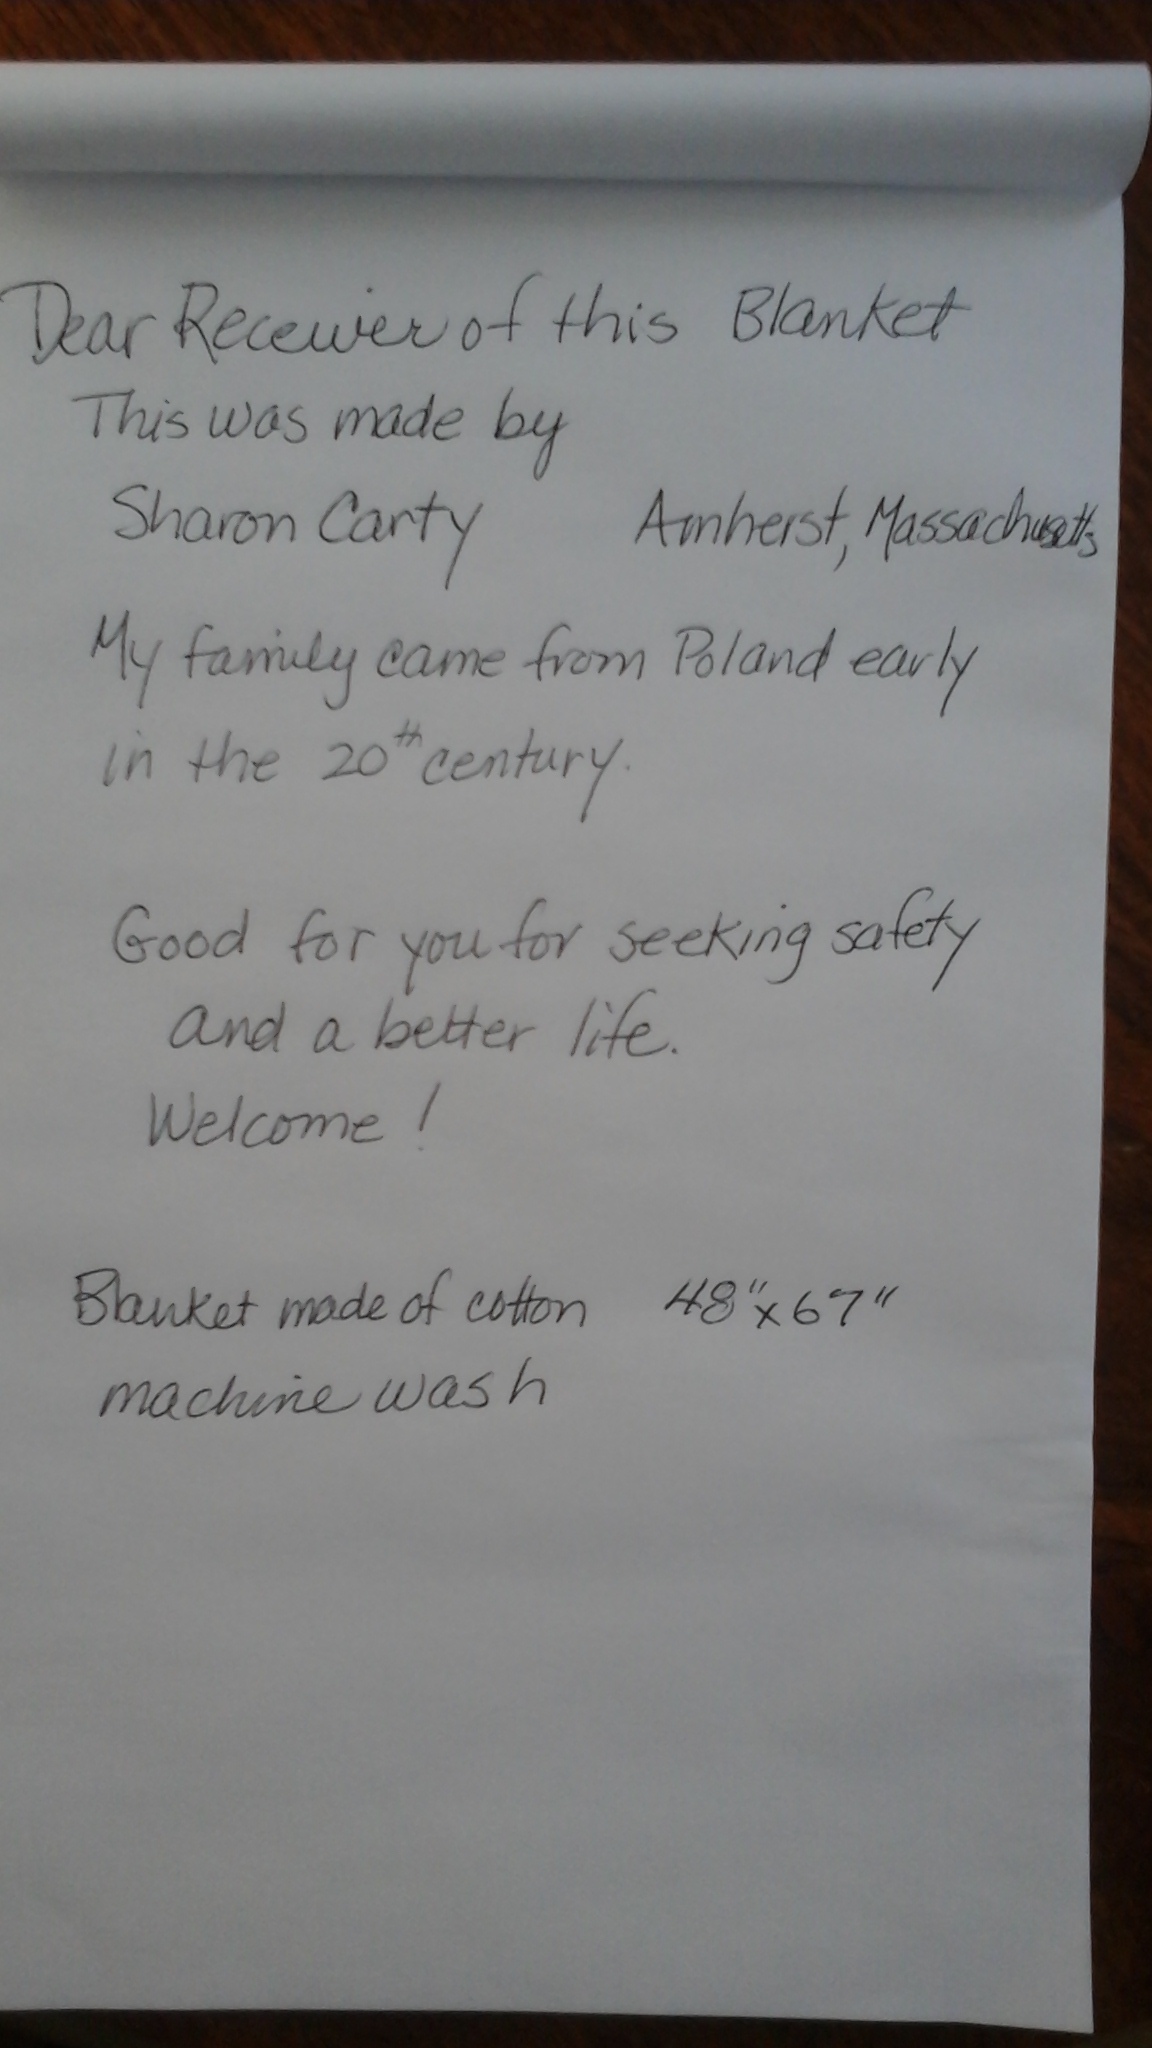 Dear Receiver of this Blanket
This was made by
Sharon Carty Amherst, Massachusetts
My family came from Poland early
in the 20th century.
Good for you for seeking safety
and a better life.
Welcome!
Blanket made of cotton 48"x67"
machine wash